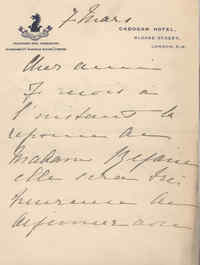 7 Mars
CADOGAN HOTEL,
SLOANE STREET,
LONDON, S.W.
Cher ami
Je reçois à
l'instant la
réponse de
Madame
elle sera très
heureuse de
déjeuner avec